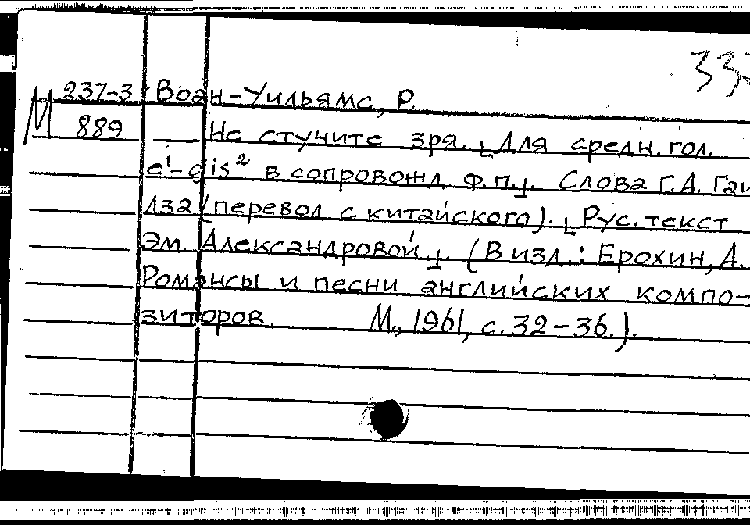 333
М 237-3
889
Воан-Уильямс, Р.
Не стучите зря. [Для средн. гол.
e¹-gis² в сопровожд. ф.п.]. Слова Г.А. Гаи
лза (перевод с китайского). [Рус. текст
Эм. Александровой.] (В изд.: Ерохин, А.
Романсы и песни английских компо-
зиторов. М., 1961, с. 32-36.).